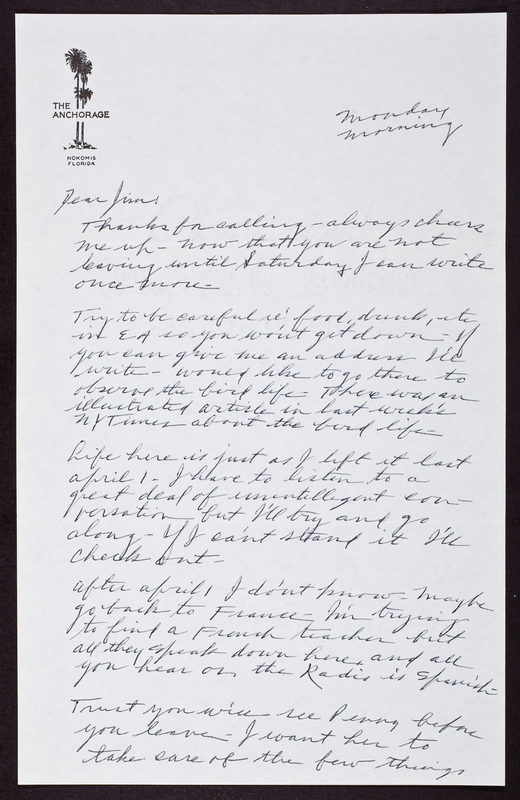 THE
ANCHORAGE
NOKOMIS
FLORIDA
Monday
Morning
Dear Jim,
Thanks for calling - always cheers
me up - now that you are not
leaving until Saturday I can write
once more -
Try to be careful re' food, drink, etc
in EA so you won't get down - If
you can give me an address I'll
write - would like to go there to
observe the bird life - There was an
illustrated article in last week's
NYTimes about the bird life -
Life here is just as I left it last
april 1 - I have to listen to a
great deal of unintelligent con-
versation but I'll try and go
along - If I can't stand it I'll
check out -
after april 1 I don't know - Maybe
go back to France - I'm trying
to find a French teacher but
all they speak down here, and all
you hear on the Radio is Spanish -
Trust you will see Penny before
you leave - I want her to
take care of the few things